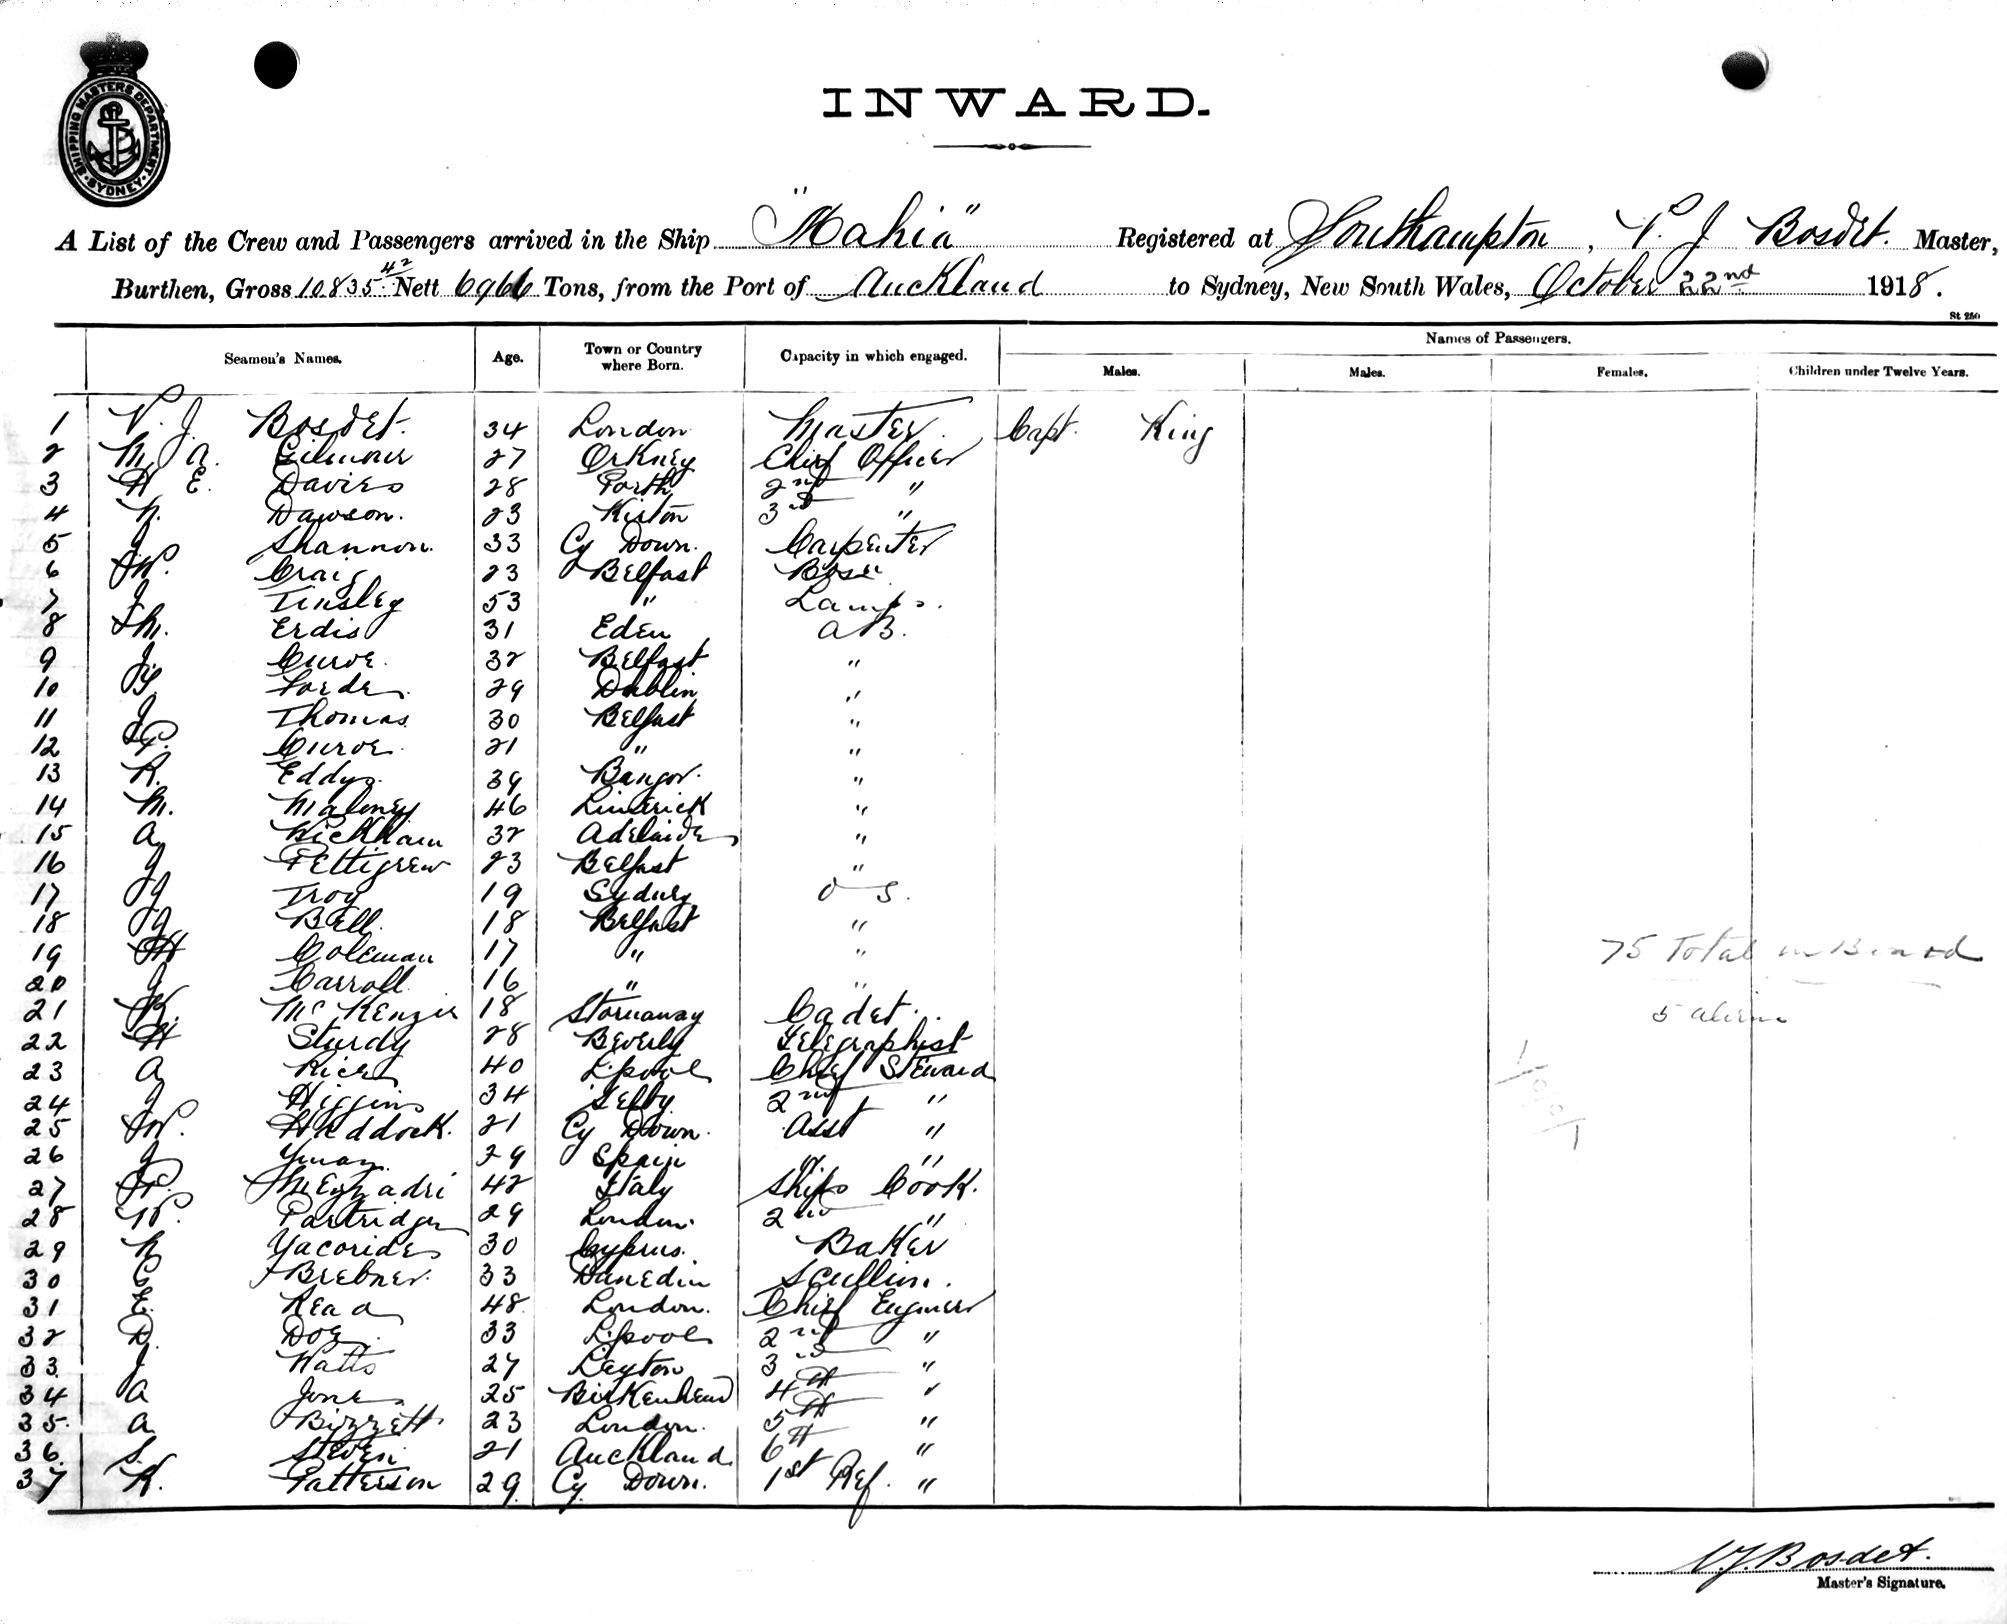 SHIPPING MASTERS DEPARTMENT
SYDNEY
INWARD.
A List of the Crew and Passengers arrived in the Ship "Mahia" Registered at Southampton, V. J Bosdet. Master,
Burthen, Gross 10835.42 Nett 6966 Tons, from the Port of Auckland to Sydney, New South Wales, October 22nd 1918.
St 250
Seamen's Names. Age. Town or Country where Born. Capacity in which engaged. Names of Passengers.
Males. Males. Females. Children under Twelve Years.
1 V. J. Bosdet. 34 London Master. Capt. King
2 M. A. Gilmour 27 Orkney Chief Officer
3 H E. Davies 28 Porth 2nd "
4 N. Dawson. 23 Kirton 3rd "
5 J Shannon. 33 Cy Down. Carpenter
6 W. Craig 23 Belfast Bosn
7 J Tinsley 53 " Lamps.
8 Erdis 31 Eden AB.
9 J. Curoe. 32 Belfast "
10 Forde. 29 Dublin "
11 J Thomas. 30 Belfast "
12 Curoe. 21 " "
13 R. Eddy. 39 Bangor. "
14 M. Maloney 46 Limerick "
15 A Wickham 32 Adelaide "
16 J Pettigrew 23 Belfast "
17 J Troy 19 Sydney O S.
18 J Bell. 18 Belfast "
19 H Coleman 17 " "
20 J Carroll. 16 " "
21 K. McKenzie 18 Stornaway Cadet.
22 H Sturdy 28 Beverly Telegraphist
23 A Rice 40 L.pool Chief Steward
24 J Higgins 34 Selby 2nd "
25 W. Haddock. 21 Cy Down. Asst "
26 J 29 Spain " "
27 Mezzadri 42 Italy Ships Cook.
28 W. Partridge 29 London. 2nd "
29 N Yacorides 30 Cyprus. Baker
30 C Brebner. 33 Dunedin Scullion.
31 E. Read 48 London. Chief Engineer
32 D. Doe. 33 L.pool 2nd "
33. J Watts 27 Leyton 3rd "
34 A Jones 25 Birkenhead 4th "
35. A 23 London. 5th "
36. S. Steven 21 Auckland 6th "
37 K. Patterson 29. Cy Down. 1st Ref. "
75 Total on Board
5 aliens
V. J. Bosdet.
Master's Signature.